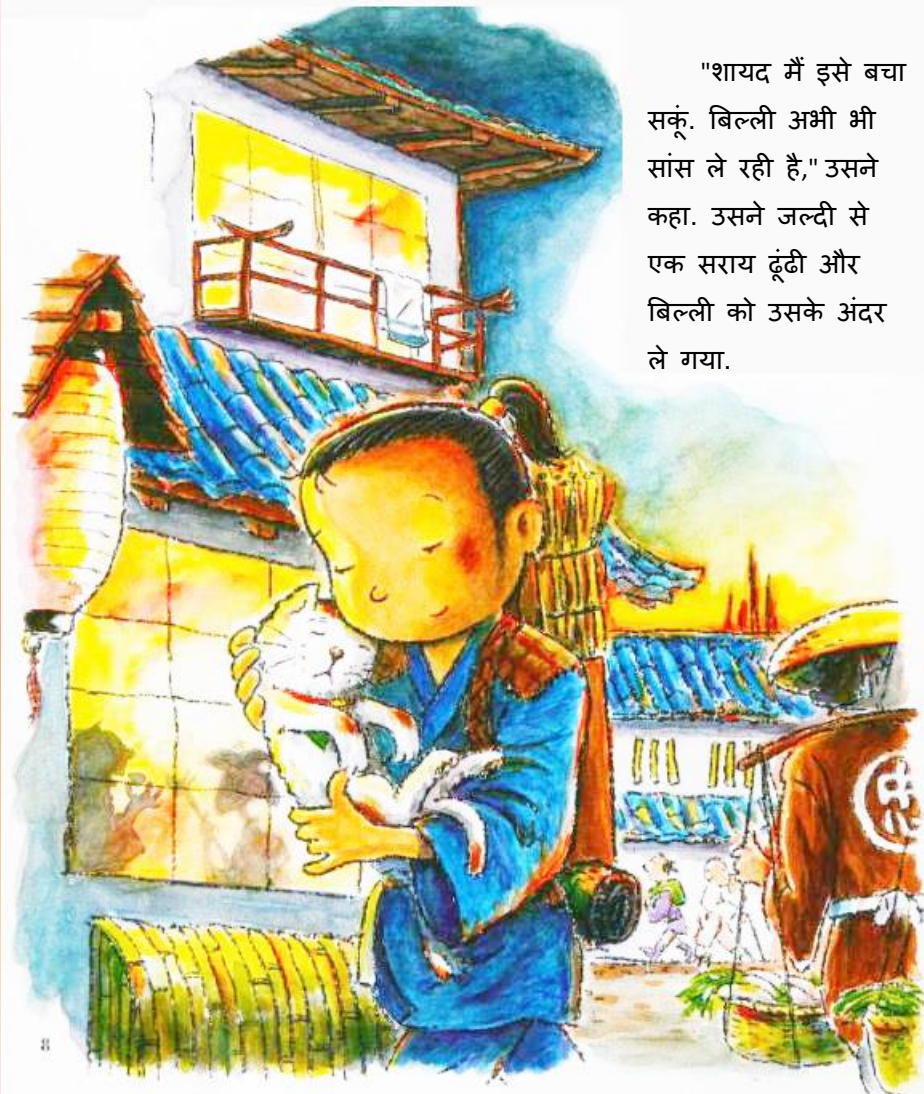 "शायद मैं इसे बचा
सकूं. बिल्ली अभी भी
सांस ले रही है," उसने
कहा. उसने जल्दी से
एक सराय ढूंढी और
बिल्ली को उसके अंदर
ले गया.
8